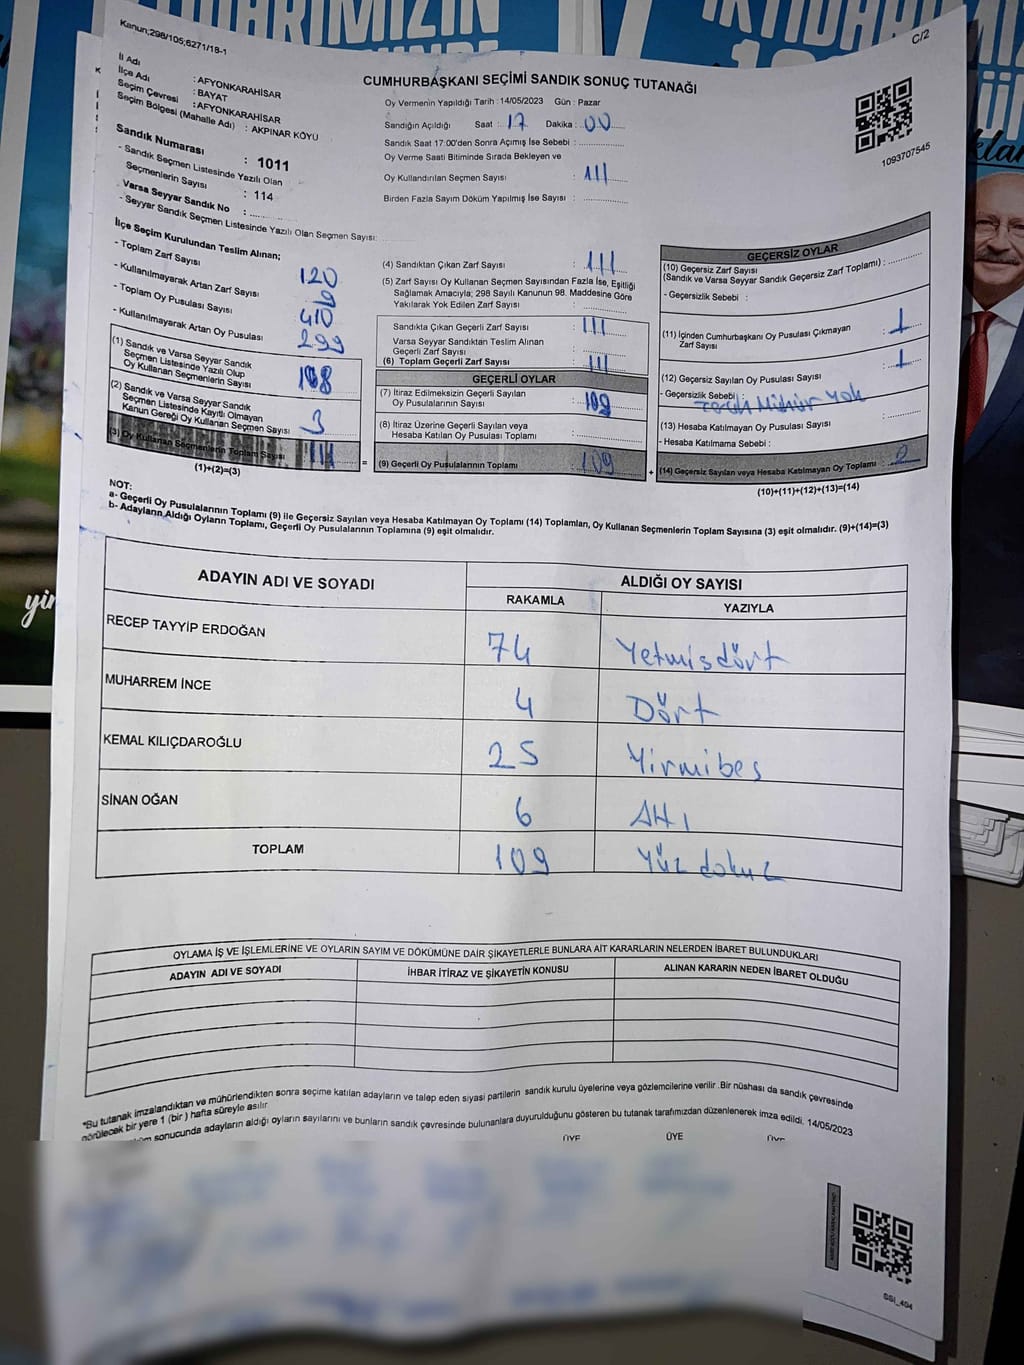 Kanun;298/105;6271/18-1
C/2
İl Adı : AFYONKARAHİSAR
İlçe Adı : BAYAT
Seçim Çevresi : AFYONKARAHİSAR
Seçim Bölgesi (Mahalle Adı) : AKPINAR KÖYÜ
Sandık Numarası : 1011
- Sandık Seçmen Listesinde Yazılı Olan
Seçmenlerin Sayısı : 114
Varsa Seyyar Sandık No :
- Seyyar Sandık Seçmen Listesinde Yazılı Olan Seçmen Sayısı:
CUMHURBAŞKANI SEÇİMİ SANDIK SONUÇ TUTANAĞI
Oy Vermenin Yapıldığı Tarih : 14/05/2023 Gün : Pazar
Sandığın Açıldığı Saat : 17 Dakika : 00
Sandık Saat 17:00'den Sonra Açılmış İse Sebebi :
Oy Verme Saati Bitiminde Sırada Bekleyen ve
Oy Kullandırılan Seçmen Sayısı : 111
Birden Fazla Sayım Döküm Yapılmış İse Sayısı :
1093707545
İlçe Seçim Kurulundan Teslim Alınan;
- Toplam Zarf Sayısı 120
- Kullanılmayarak Artan Zarf Sayısı 9
- Toplam Oy Pusulası Sayısı 410
- Kullanılmayarak Artan Oy Pusulası 299
(1) Sandık ve Varsa Seyyar Sandık
Seçmen Listesinde Yazılı Olup
Oy Kullanan Seçmenlerin Sayısı 108
(2) Sandık ve Varsa Seyyar Sandık
Seçmen Listesinde Kayıtlı Olmayan
Kanun Gereği Oy Kullanan Seçmen Sayısı 3
(3) Oy Kullanan Seçmenlerin Toplam Sayısı 111
(1)+(2)=(3)
(4) Sandıktan Çıkan Zarf Sayısı : 111
(5) Zarf Sayısı Oy Kullanan Seçmen Sayısından Fazla İse, Eşitliği
Sağlamak Amacıyla; 298 Sayılı Kanunun 98. Maddesine Göre
Yakılarak Yok Edilen Zarf Sayısı :
Sandıkta Çıkan Geçerli Zarf Sayısı : 111
Varsa Seyyar Sandıktan Teslim Alınan
Geçerli Zarf Sayısı :
(6) Toplam Geçerli Zarf Sayısı : 111
GEÇERLİ OYLAR
(7) İtiraz Edilmeksizin Geçerli Sayılan
Oy Pusulalarının Sayısı : 109
(8) İtiraz Üzerine Geçerli Sayılan veya
Hesaba Katılan Oy Pusulası Toplamı :
= (9) Geçerli Oy Pusulalarının Toplamı : 109 +
GEÇERSİZ OYLAR
(10) Geçersiz Zarf Sayısı
(Sandık ve Varsa Seyyar Sandık Geçersiz Zarf Toplamı) :
- Geçersizlik Sebebi :
(11) İçinden Cumhurbaşkanı Oy Pusulası Çıkmayan
Zarf Sayısı : 1
(12) Geçersiz Sayılan Oy Pusulası Sayısı : 1
- Geçersizlik Sebebi : Mühür Yok
(13) Hesaba Katılmayan Oy Pusulası Sayısı :
- Hesaba Katılmama Sebebi :
(14) Geçersiz Sayılan veya Hesaba Katılmayan Oy Toplamı : 2
(10)+(11)+(12)+(13)=(14)
NOT:
a- Geçerli Oy Pusulalarının Toplamı (9) ile Geçersiz Sayılan veya Hesaba Katılmayan Oy Toplamı (14) Toplamları, Oy Kullanan Seçmenlerin Toplam Sayısına (3) eşit olmalıdır. (9)+(14)=(3)
b- Adayların Aldığı Oyların Toplamı, Geçerli Oy Pusulalarının Toplamına (9) eşit olmalıdır.
ADAYIN ADI VE SOYADI ALDIĞI OY SAYISI
RAKAMLA YAZIYLA
RECEP TAYYİP ERDOĞAN 74 Yetmisdört
MUHARREM İNCE 4 Dört
KEMAL KILIÇDAROĞLU 25 Yirmibes
SİNAN OĞAN 6 Altı
TOPLAM 109 Yüz dokuz
OYLAMA İŞ VE İŞLEMLERİNE VE OYLARIN SAYIM VE DÖKÜMÜNE DAİR ŞİKAYETLERLE BUNLARA AİT KARARLARIN NELERDEN İBARET BULUNDUKLARI
ADAYIN ADI VE SOYADI İHBAR İTİRAZ VE ŞİKAYETİN KONUSU ALINAN KARARIN NEDEN İBARET OLDUĞU
*Bu tutanak imzalandıktan ve mühürlendikten sonra seçime katılan adayların ve talep eden siyasi partilerin sandık kurulu üyelerine veya gözlemcilerine verilir .Bir nüshası da sandık çevresinde
görülecek bir yere 1 (bir ) hafta süreyle asılır
sonucunda adayların aldığı oyların sayılarını ve bunların sandık çevresinde bulunanlara duyurulduğunu gösteren bu tutanak tarafımızdan düzenlenerek imza edildi. 14/05/2023
ÜYE ÜYE ÜYE
SSİ_404